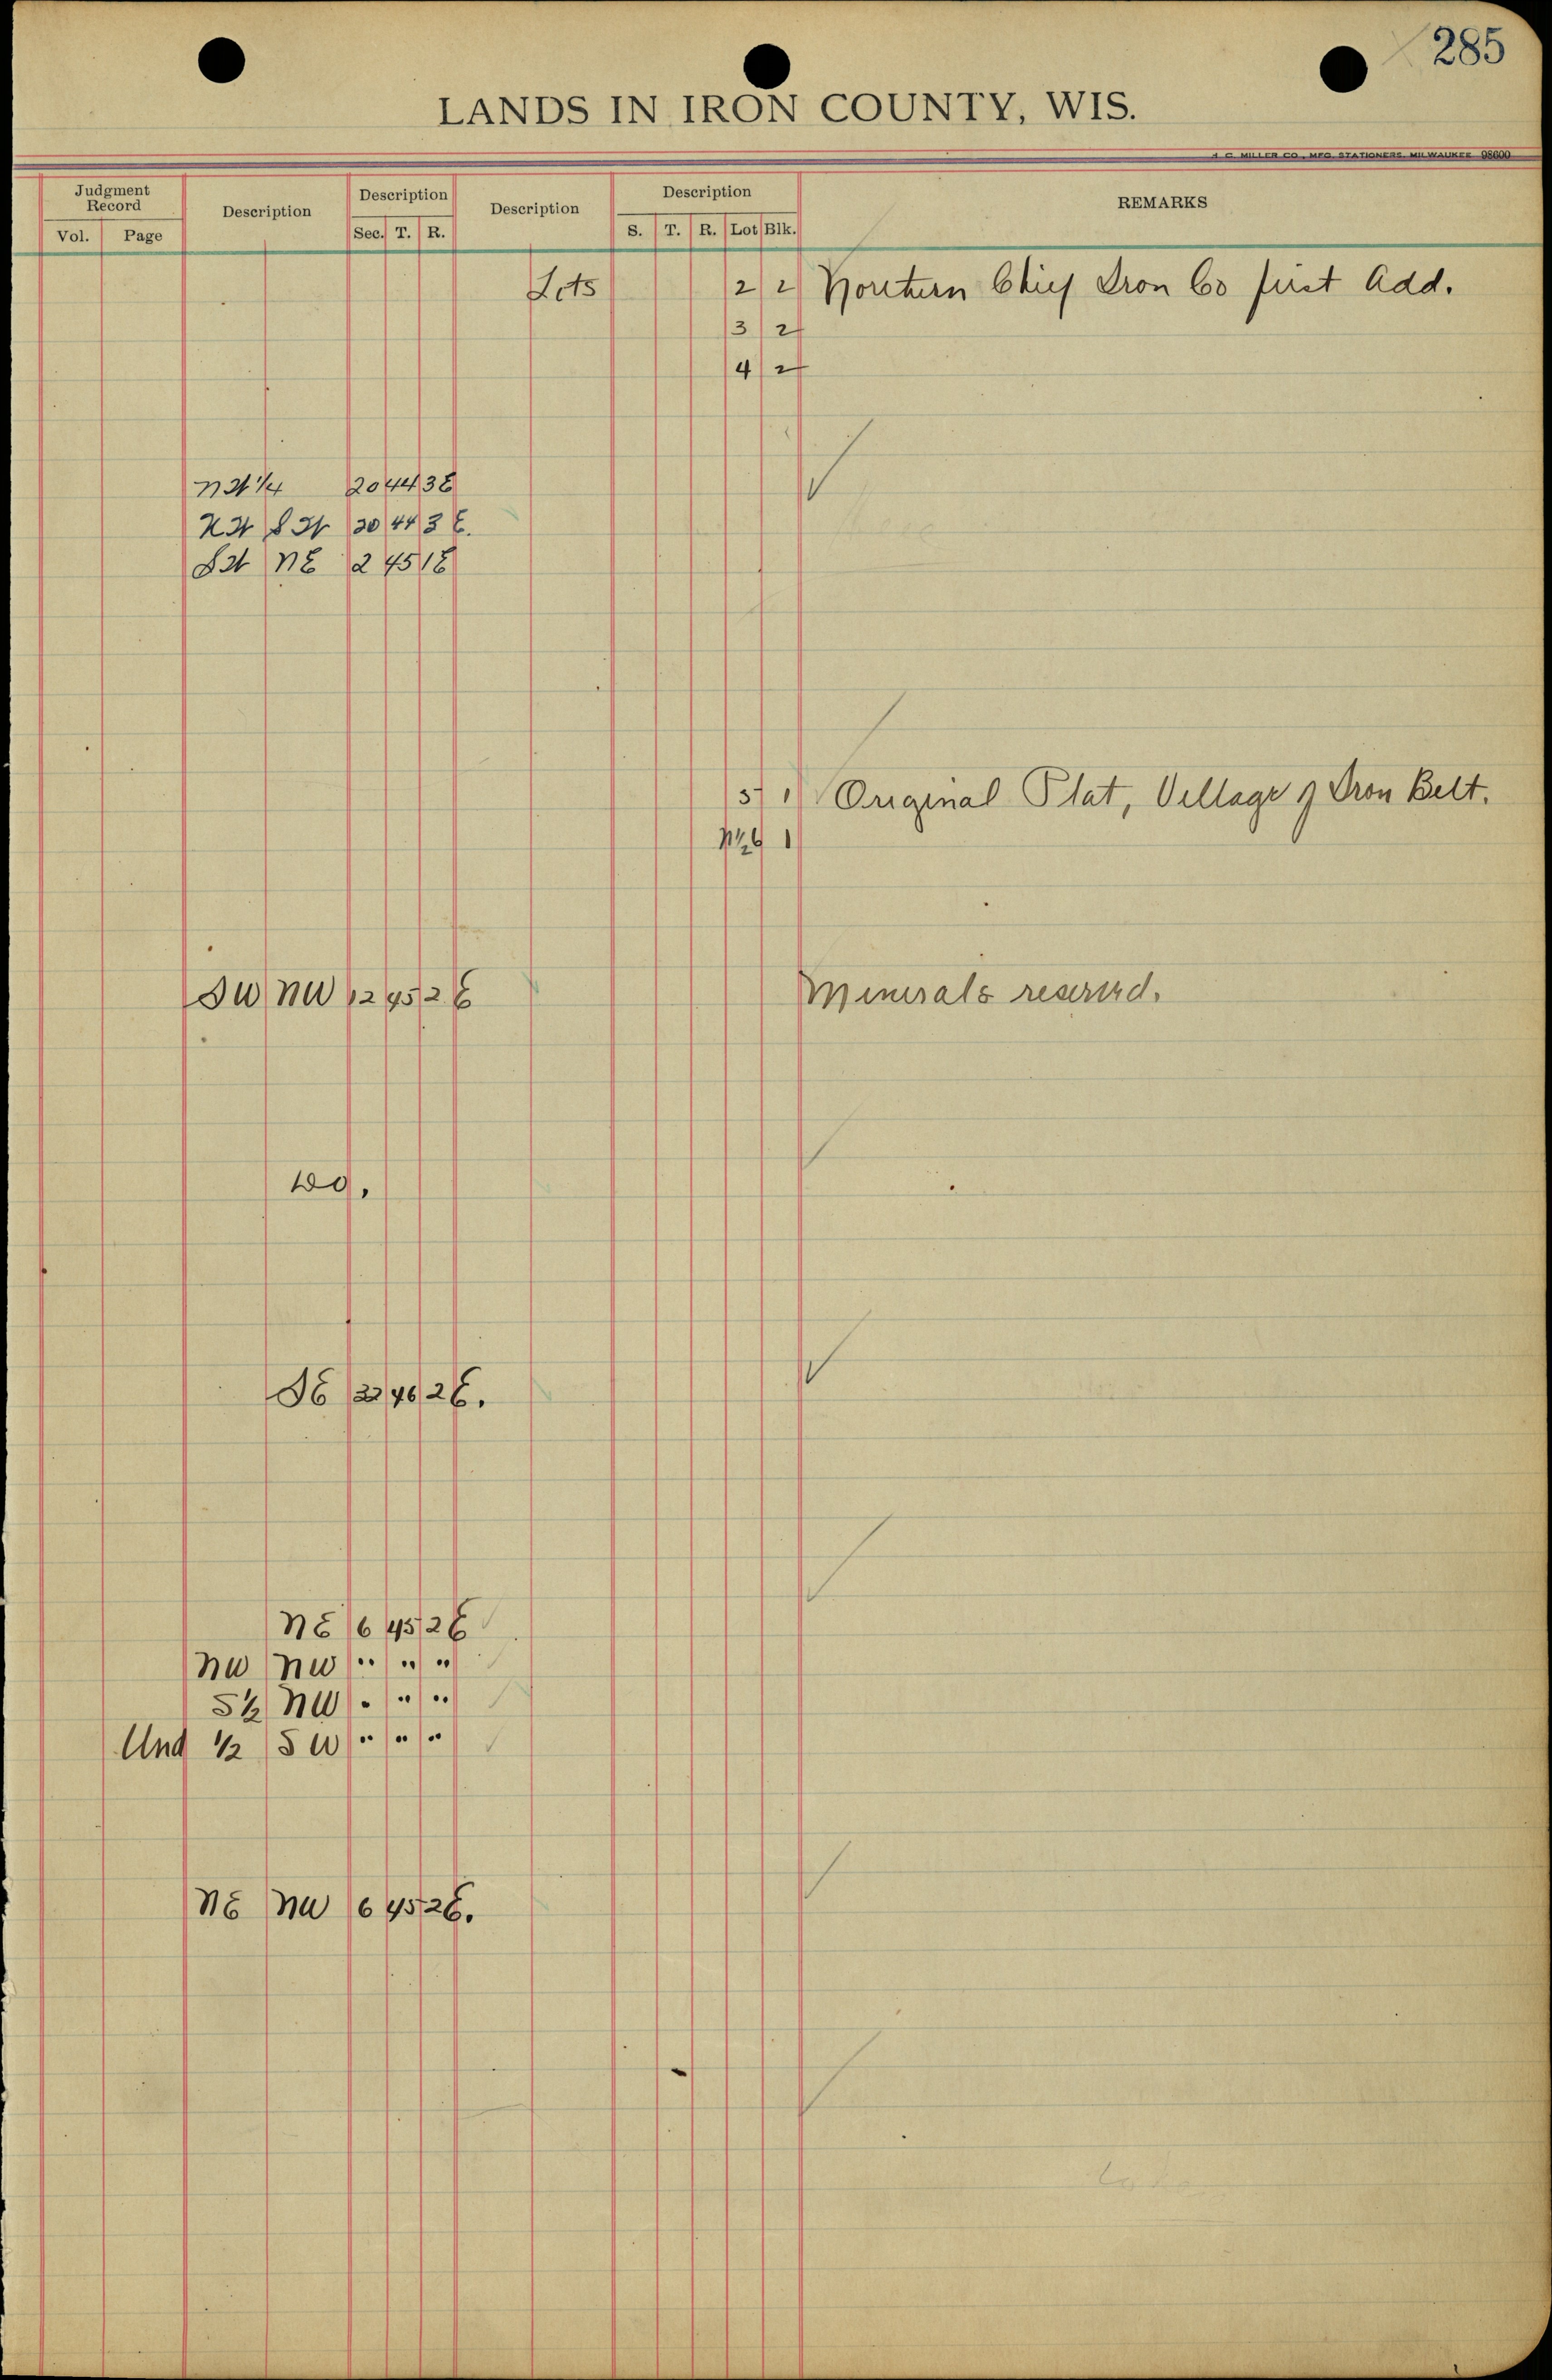 285
LANDS IN IRON COUNTY, WIS.
H. C. MILLER CO., MFG. STATIONERS, MILWAUKEE 98600
Judgment Record Description Description Description Description REMARKS
Vol. Page Sec. T. R. S. T. R. Lot Blk.
Lots 2 2 Northern Chief Iron Co first Add.
3 2
4 2
NW 1/4 20 44 3E
NW SW 30 44 3 E.
SW NE 2 45 1E
5 1 Original Plat, Village of Iron Belt.
N1/2 6 1
SW NW 12 45 2 E Minerals reserved.
Do.
SE 32 46 2 E.
NE 6 45 2 E
NW NW " " "
S 1/2 NW " " "
Und 1/2 SW " " "
NE NW 6 45 2 E.